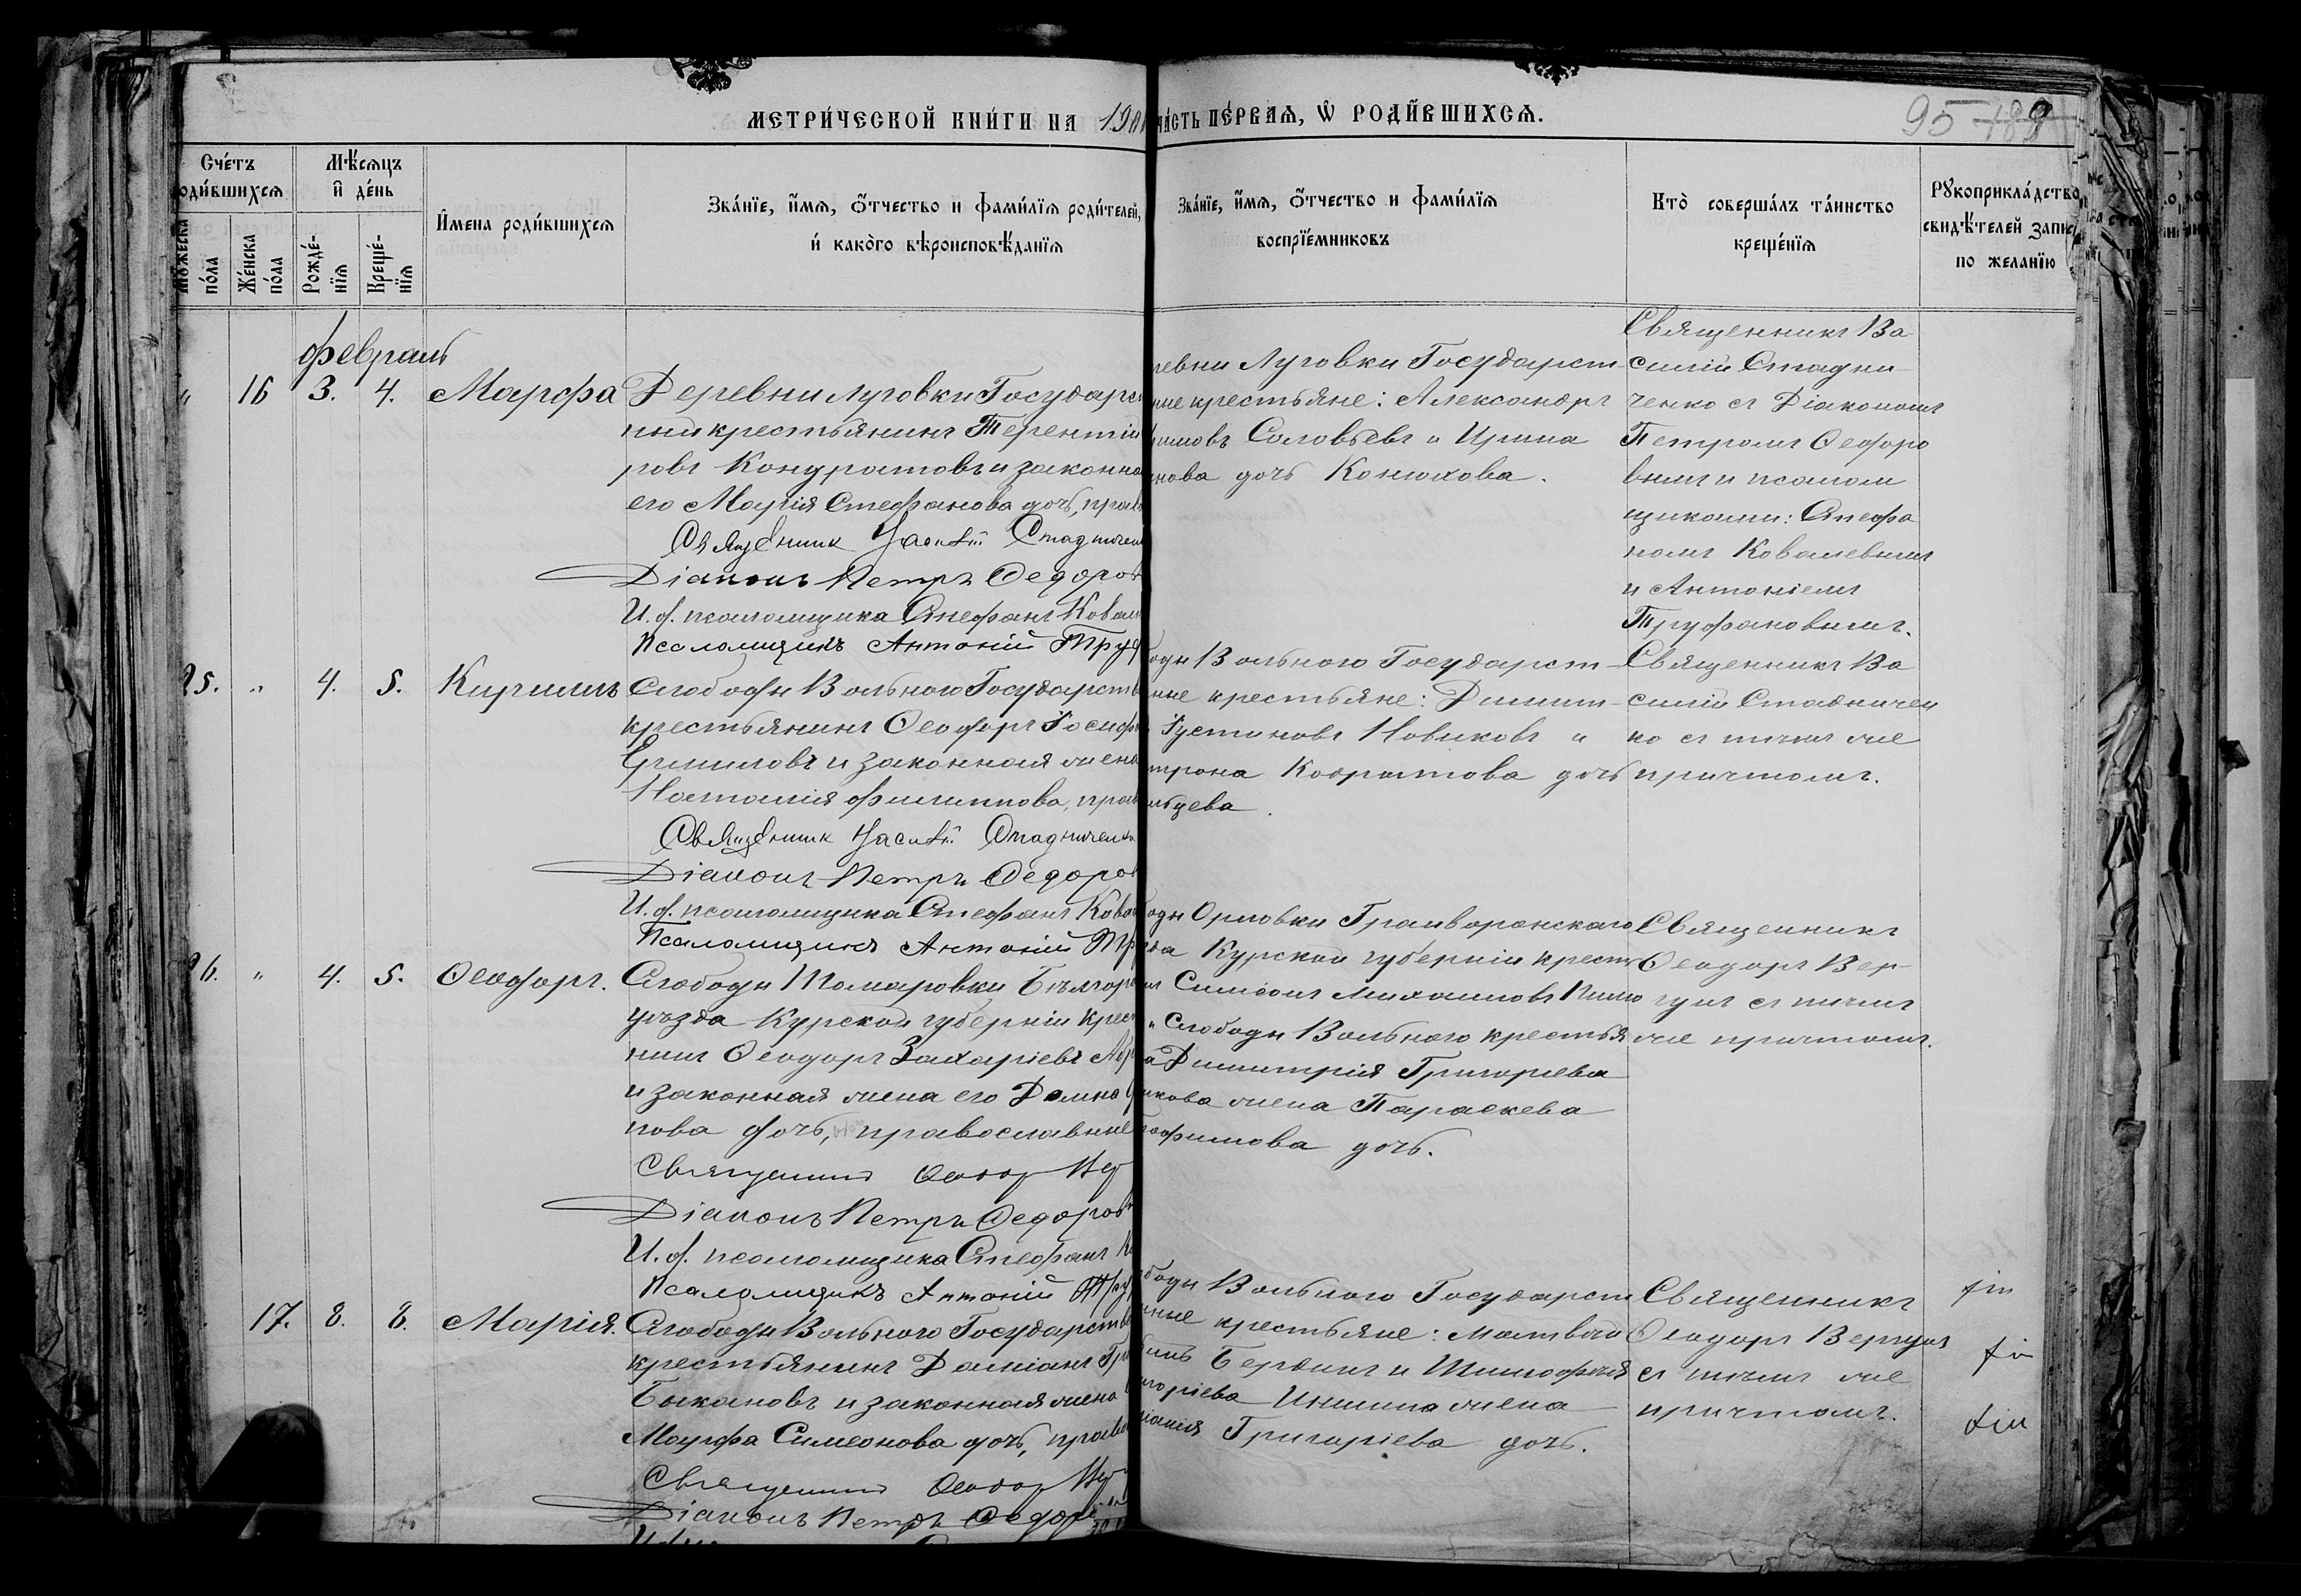 МЕТРИ́ЧЕСКОЙ КНИ́ГИ НА 190
ЧА́СТЬ ПЕ́РВАЯ, Ѡ҆ РОДИ́ВШИХСЯ.
95 189
Сче́тъ
роди́вшихся
Мѣ́сяцъ
и҆ де́нь
И҆мена роди́вшихся
Зва́нїе, и҆́мя, ѻ҆́тчество и фами́лїя роди́телей,
и҆ како́го вѣроисповѣ́данїя
Мꙋ́жеска по́ла
Же́нска по́ла
Рожде́-нїя
Креще́-нїя
Зва́нїе, и҆́мя, ѻ҆́тчество и фами́лїя
воспрїе́мниковъ
Кто̀ соверша́лъ та́инство
креще́нїя
Рꙋкоприкла́дство
свидѣ́телей запис
по желанїю
февраль
16 3. 4. Марѳа
Деревни Луговки Государс
ный крестьянинъ Терентій
ровъ Кондратовъ и законна
его Марія Стефанова дочь, прав
Священник Василій Стадничен
Діаконъ Петръ Ѳедоров
И. д. псаломщика Стефанъ Ковал
Псаломщикъ Антоній Труф
евни Луговки Государст
ные крестьяне: Александръ
имовъ Соловьевъ и Ирина
нова дочь Конюхова.
Священникъ Ва
силій Стадни
ченко съ Діакономъ
Петромъ Ѳеодоро
вымъ и псалом
щиками: Стефа
номъ Ковалевымъ
и Антоніемъ
Труфановымъ.
25. " 4. 5. Кириллъ
Слободы Вольного Государств
крестьянинъ Ѳеодоръ Іосиф
Ермиловъ и законная жена
Наталія Филиппова, прав
Священник Василій Стадниченк
Діаконъ Петръ Ѳедоров
И. д. псаломщика Стефанъ Кова
Псаломщикъ Антоній Тр
оды Вольного Государст
ные крестьяне: Димит
Іустиновъ Новиковъ и
трона Кодратова дочь
льцева.
Священникъ Ва
силій Стадничен
ко съ тѣмъ же
причтомъ.
26. " 4. 5. Ѳеодоръ.
Слободы Томаровки Бѣлгор
уѣзда Курской губерніи крес
нинъ Ѳеодоръ Захаріевъ
и законная жена его Домна
пова дочь, православные
Священникъ Ѳеодор Вер
Діаконъ Петръ Ѳедоров
И. д. псаломщика Стефанъ К
Псаломщикъ Антоній Тру
оды Орловки Грайворонскаго
да Курской губерніи крест
Симеонъ Михаиловъ
и Слободы Вольного крестья
Димитрія Григорьева
икова жена Параскева
рофимова дочь.
Священникъ
Ѳеодоръ Вер
гунъ съ тѣмъ
же причтомъ.
17. 8. 8. Марія.
Слободы Вольного Государств
крестьянинъ Даміанъ Гри
Быкановъ и законная жена
Марѳа Симеонова дочь, право
Священникъ Ѳеодор Вер
Діаконъ Петръ Ѳедоро
ободы Вольного Государст
нные крестьяне: Матвѣй
Бердинъ и Тимоѳея
игоріева Инишна жена
Григоріева дочь.
Священникъ
Ѳеодоръ Вергунъ
съ тѣмъ же
причтомъ.